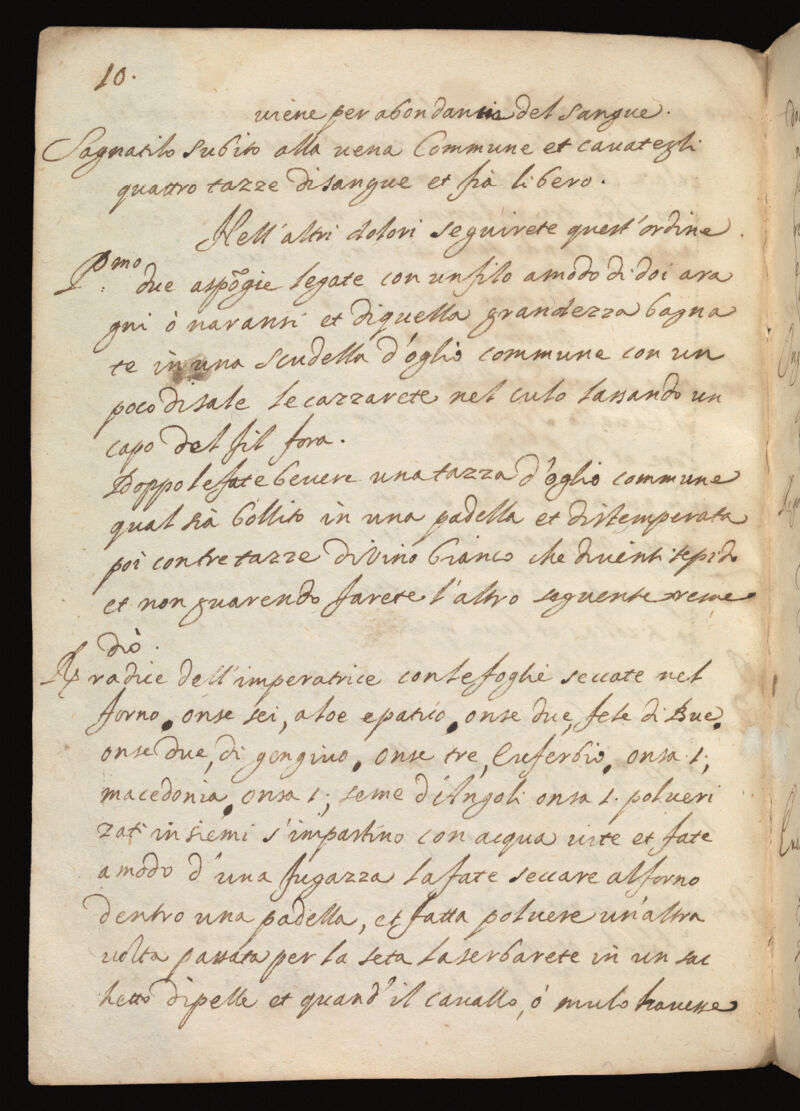 10.
viene per abondantia del sangue.
Sagnatilo subito alla vena Commune et cavategli
quattro tazze di sangue et sia libero.
Nell'altri dolori seguirete quest'ordine.
Pmo. due aspõgie legate con un filo a modo di doi ara
gni ò naransi et di quella grandezza bagna
te in una scudella d'oglio commune con un
poco di sale le cazzarete nel culo lassando un
capo del fil fora.
Doppo le fate bevere una tazza d'oglio commune
qual sia bollito in una padella et distemperata
poi con tre tazze di vino bianco che diventi tepido
et non guarendo farete l'altro seguente reme
dio.
℞ radice dell'imperatrice con le foglie seccate nel
forno, onse sei, aloe epatico, onse due, fele di Bue,
onse due, di gengivo, onse tre, Euferbio, onsa 1;
macedonia, onsa 1; seme d'Angoli onsa 1. polveri
zati insiemi s'impastino con acqua vite et fate
a modo d'una fugazza la fate seccare al forno
dentro una padella, et fatta polvere un'altra
volta passata per la seta la serbarete in un sac
hetto di pelle et quand'il cavallo, ó mulo havesse